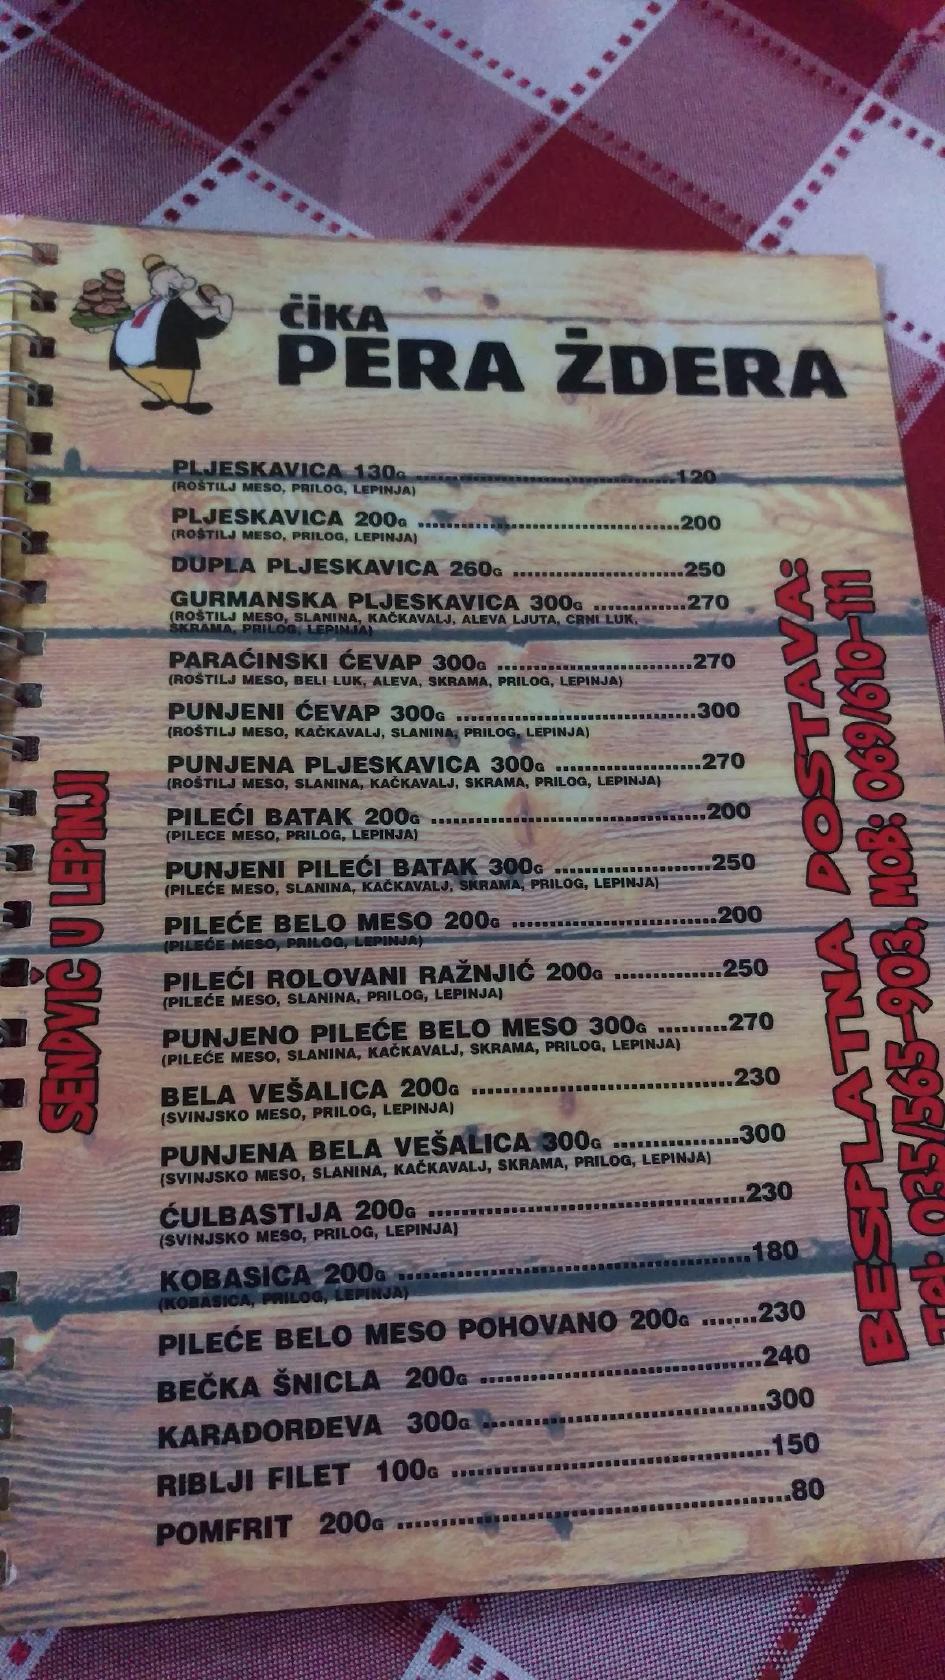 ČIKA
PERA ŽDERA
PLJESKAVICA 130G ........................120
(ROŠTILJ MESO, PRILOG, LEPINJA)
PLJESKAVICA 200G ........................200
(ROŠTILJ MESO, PRILOG, LEPINJA)
DUPLA PLJESKAVICA 260G ................250
GURMANSKA PLJESKAVICA 300G .............270
(ROŠTILJ MESO, SLANINA, KAČKAVALJ, ALEVA LJUTA, CRNI LUK,
SKRAMA, PRILOG, LEPINJA)
PARAĆINSKI ĆEVAP 300G ..................270
(ROŠTILJ MESO, BELI LUK, ALEVA, SKRAMA, PRILOG, LEPINJA)
PUNJENI ĆEVAP 300G ......................300
(ROŠTILJ MESO, KAČKAVALJ, SLANINA, PRILOG, LEPINJA)
PUNJENA PLJESKAVICA 300G ..............270
(ROŠTILJ MESO, SLANINA, KAČKAVALJ, SKRAMA, PRILOG, LEPINJA)
PILEĆI BATAK 200G ........................200
(PILECE MESO, PRILOG, LEPINJA)
PUNJENI PILEĆI BATAK 300G ..............250
(PILEĆE MESO, SLANINA, KAČKAVALJ, SKRAMA, PRILOG, LEPINJA)
PILEĆE BELO MESO 200G ..................200
(PILEĆE MESO, PRILOG, LEPINJA)
PILEĆI ROLOVANI RAŽNJIĆ 200G ..........250
(PILEĆE MESO, SLANINA, PRILOG, LEPINJA)
PUNJENO PILEĆE BELO MESO 300G .........270
(PILEĆE MESO, SLANINA, KAČKAVALJ, SKRAMA, PRILOG, LEPINJA)
BELA VEŠALICA 200G .....................230
(SVINJSKO MESO, PRILOG, LEPINJA)
PUNJENA BELA VEŠALICA 300G ............300
(SVINJSKO MESO, SLANINA, KAČKAVALJ, SKRAMA, PRILOG, LEPINJA)
ĆULBASTIJA 200G ........................230
(SVINJSKO MESO, PRILOG, LEPINJA)
KOBASICA 200G ..........................180
(KOBASICA, PRILOG, LEPINJA)
PILEĆE BELO MESO POHOVANO 200G .......230
BEČKA ŠNICLA 200G ......................240
KARAĐORĐEVA 300G ......................300
RIBLJI FILET 100G ........................150
POMFRIT 200G ............................80
SENDVIČ U LEPINJI
BESPLATNA DOSTAVA:
Tel: 035/565-903, MOB: 069/610-111